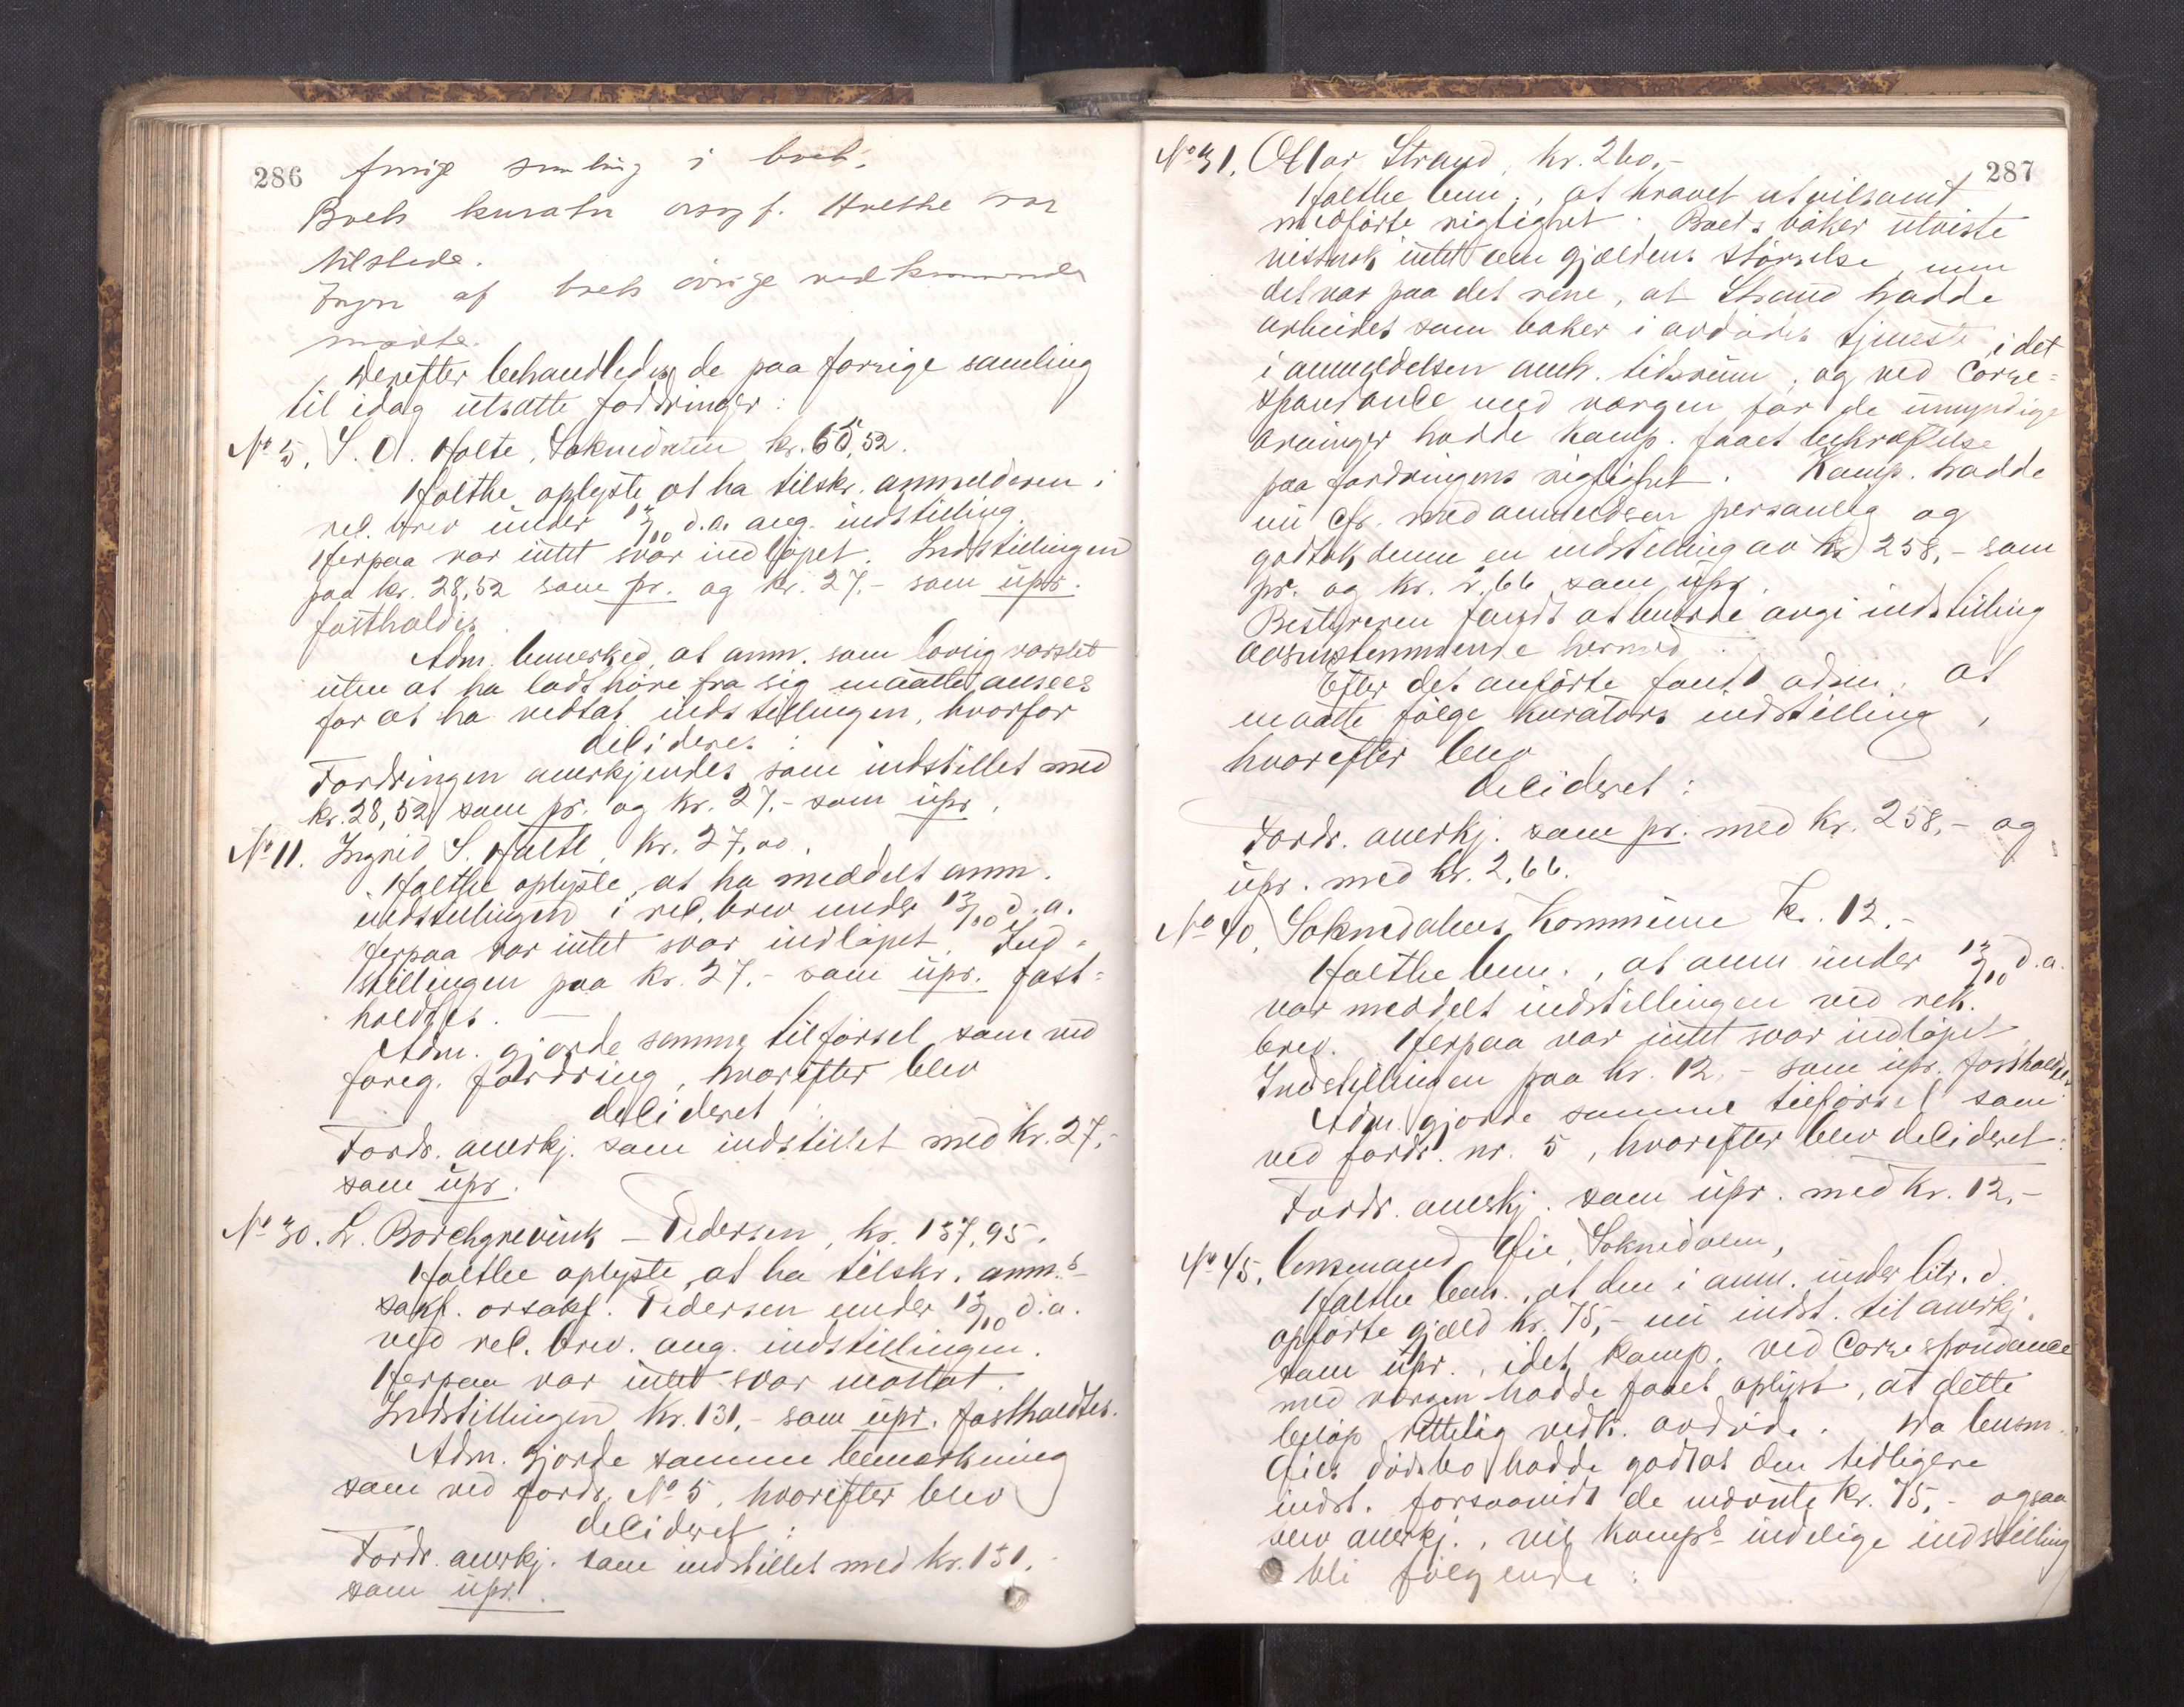 286
forrige samling i boet.
Boets kurator orsagf. Holthe var
tilstede.
Ingen af boets övrige vedkommende
mødte.
Derefter behandledes de paa forrige samling
til idag utsatte fordringer:
No 5. S. A. Holte, Soknedalen kr. 55,52.
Holthe oplyste at ha tilskr. anmelderen i
rek. brev under 13/10 d.a. ang. indstilling.
Herpaa var intet svar indløpet. Indstillingen
paa kr. 28,52 som pr. og kr. 27,- som upr.
fastholdes.
Adm. bemerked, at anm. som lovlig varslet
uten at ha ladt høre fra sig maatte ansees
for at ha vedtat indstillingen, hvorfor
decideres:
Fordringen anerkjendes som indstillet med
kr. 28,52 som pr. og kr. 27,- som upr.
No 11. Ingrid S. Holte, kr. 27,00.
Holthe oplyste, at ha meddelt anm.
indstillingen i rek. brev under 13/10 d.a.
Herpaa var intet svar indløpet. Ind-
stillingen paa kr. 27,- som upr. fast-
holdtes.
Adm. gjorde samme tilførsel som ved
foreg. fordring, hvorefter blev
decideret:
Fordr. anerkj. som indstillet med kr. 27,-
som upr.
No 30. L. Borchgrevink - Pedersen, kr. 137,95.
Holthe oplyste, at ha tilskr. anm.s
sakf. orsakf. Pedersen under 13/10 d.a.
ved rek. brev. ang. indstillingen.
Herpaa var intet svar mottat.
Indstillingen kr. 131,- som upr. fastholdtes.
Adm. gjorde samme bemerkning
som ved fordr. No 5, hvorefter blev
decideret:
Fordr. anerkj. som indstillet med kr. 131,-
som upr.
287
No 31. Ottar Strand, kr. 260,-
Holthe bem., at kravet utvilsomt
medførte rigtighet. Boets bøker utviste
vistnok intet om gjældens størrelse, men
det var paa det rene, at Strand hadde
arbeidet som baker i avdødes tjeneste i det
i anmeldelsen anh. tidsrum, og ved Corre-
spondance med vergen for de umyndige
arvinger hadde komp. faaet bekræftelse
paa fordringens rigtighet. Komp. hadde
nu cfr. med anmelderen personlig og
godtok denne en indstilling av kr. 258,- som
pr. og kr. 2,66 som upr.
Bestyreren fandt at burde avgi indstilling
overensstemmende hermed.
Efter det anførte fandt adm. at
maatte følge kurators indstilling,
hvorefter blev
decideret:
Fordr. anerkj. som pr. med kr. 258,- og
upr. med kr. 2,66.
No 40. Soknedalens Kommune k. 12.-
Holthe bem., at anm under 13/10 d.a.
var meddelt indstillingen ved rek.
brev. Herpaa var intet svar indløpet.
Indstillingen paa kr. 12.- som upr. fastholdtes.
Adm. gjorde samme tilførsel som
ved fordr. nr. 5, hvorefter blev decideret:
Fordr. anerkj. som upr. med kr. 12,-
No 45. lensmand Gie, Soknedalen,
Holthe bem., at den i anm. under litr. d.
opførte gjæld kr. 75,- nu indst. til anerkj.
som upr., idet komp. ved Correspondance
med vergen hadde faaet oplyst, at dette
beløp rettelig vedk. avdøde. Da lensm.
Gies dødsbo hadde godtat den tidligere
indst. forsaavidt de nævnte kr. 75,- ogsaa
blev anerkj., vil komps endelige indstilling
bli følgende: